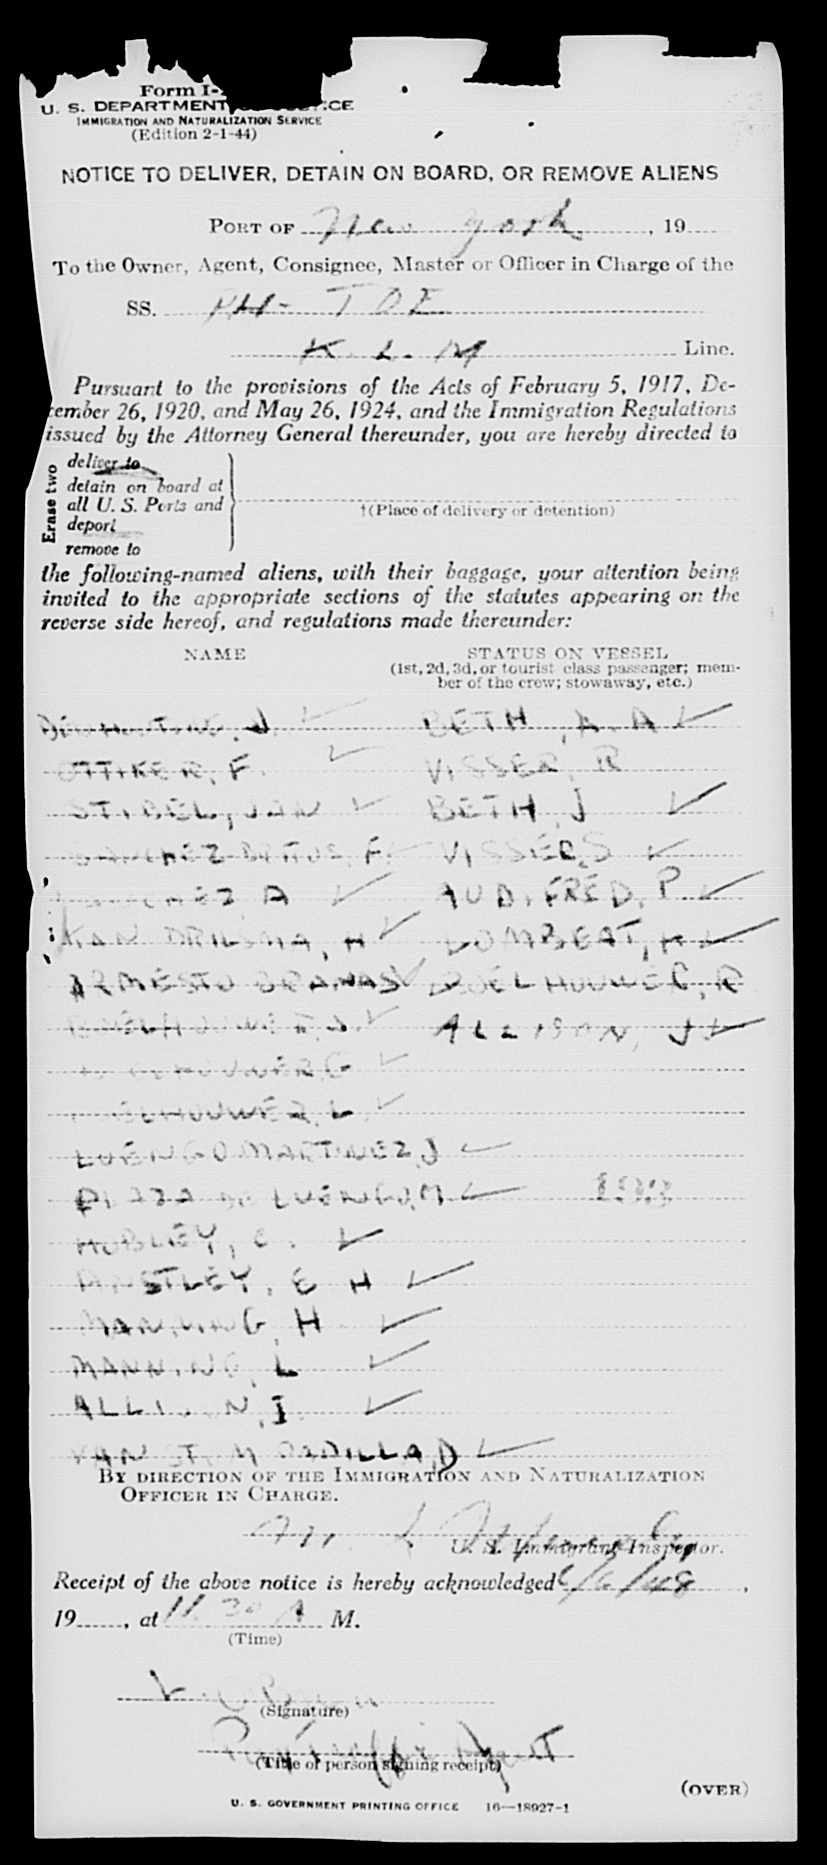 Form I-
U. S. DEPARTMENT
IMMIGRATION AND NATURALIZATION SERVICE
(Edition 2-1-44)
NOTICE TO DELIVER, DETAIN ON BOARD, OR REMOVE ALIENS
PORT OF New York, 19
To the Owner, Agent, Consignee, Master or Officer in Charge of the
SS. PH- TDE
K. L. M Line.
Pursuant to the provisions of the Acts of February 5, 1917, De-
cember 26, 1920, and May 26, 1924, and the Immigration Regulations
issued by the Attorney General thereunder, you are hereby directed to
Erase two
deliver to
detain on board at
all U. S. Ports and
deport
remove to
†(Place of delivery or detention)
the following-named aliens, with their baggage, your attention being
invited to the appropriate sections of the statutes appearing on the
reverse side hereof, and regulations made thereunder:
NAME STATUS ON VESSEL
(1st, 2d, 3d, or tourist class passenger; mem-
ber of the crew; stowaway, etc.)
J. BETH, A. A ✓
OTTIKER, F. ✓ VISSER, R
STIBEL, JAN ✓ BETH, J ✓
F. ✓ VISSER, S ✓
A ✓ AUDIFRED, P. ✓
H ✓ H ✓
ARMESTO BRANAS ✓ BOELHOUWER, R
BOELHOUWER, J. ✓ ALLISON, J ✓
BOELHOUWER, G ✓
BOELHOUWER, L. ✓
LUENGO MARTINEZ, J ✓
PLAZA DE LUENGO, M ✓
HUBLEY, C. ✓
ANSTLEY, E H ✓
MANNING, H ✓
MANNING, L ✓
N, I. ✓
VAN PADILLA, D ✓
BY DIRECTION OF THE IMMIGRATION AND NATURALIZATION
OFFICER IN CHARGE.
U. S. Immigrant Inspector.
Receipt of the above notice is hereby acknowledged 6/6/48,
19, at 11 30 A M.
(Time)
(Signature)
Agent
(Title of person signing receipt)
(OVER)
U. S. GOVERNMENT PRINTING OFFICE 16—18927-1